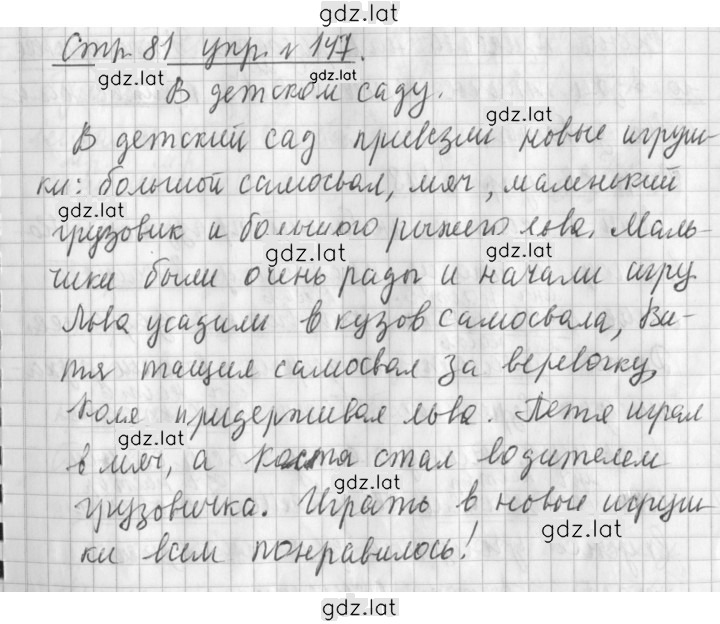 gdz.lat
Стр. 81 упр. № 147.
gdz.lat gdz.lat
В детском саду.
gdz.lat
В детский сад привезли новые игруш-
ки: большой самосвал, мяч, маленький
gdz.lat
грузовик и большого рыжего льва. Маль-
gdz.lat gdz.lat
чики были очень рады и начали игру.
Льва усадили в кузов самосвала, Ви-
тя тащил самосвал за веревочку,
Коля придерживал льва. Петя играл
gdz.lat
в мяч, а Костя стал водителем
gdz.lat
грузовичка. Играть в новые игруш-
gdz.lat
ки всем понравилось!
gdz.lat